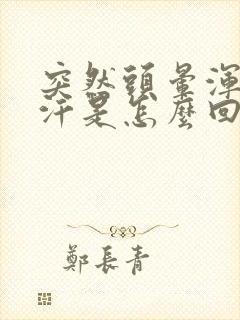 突然頭暈渾
汗是怎麼回
鄭長青